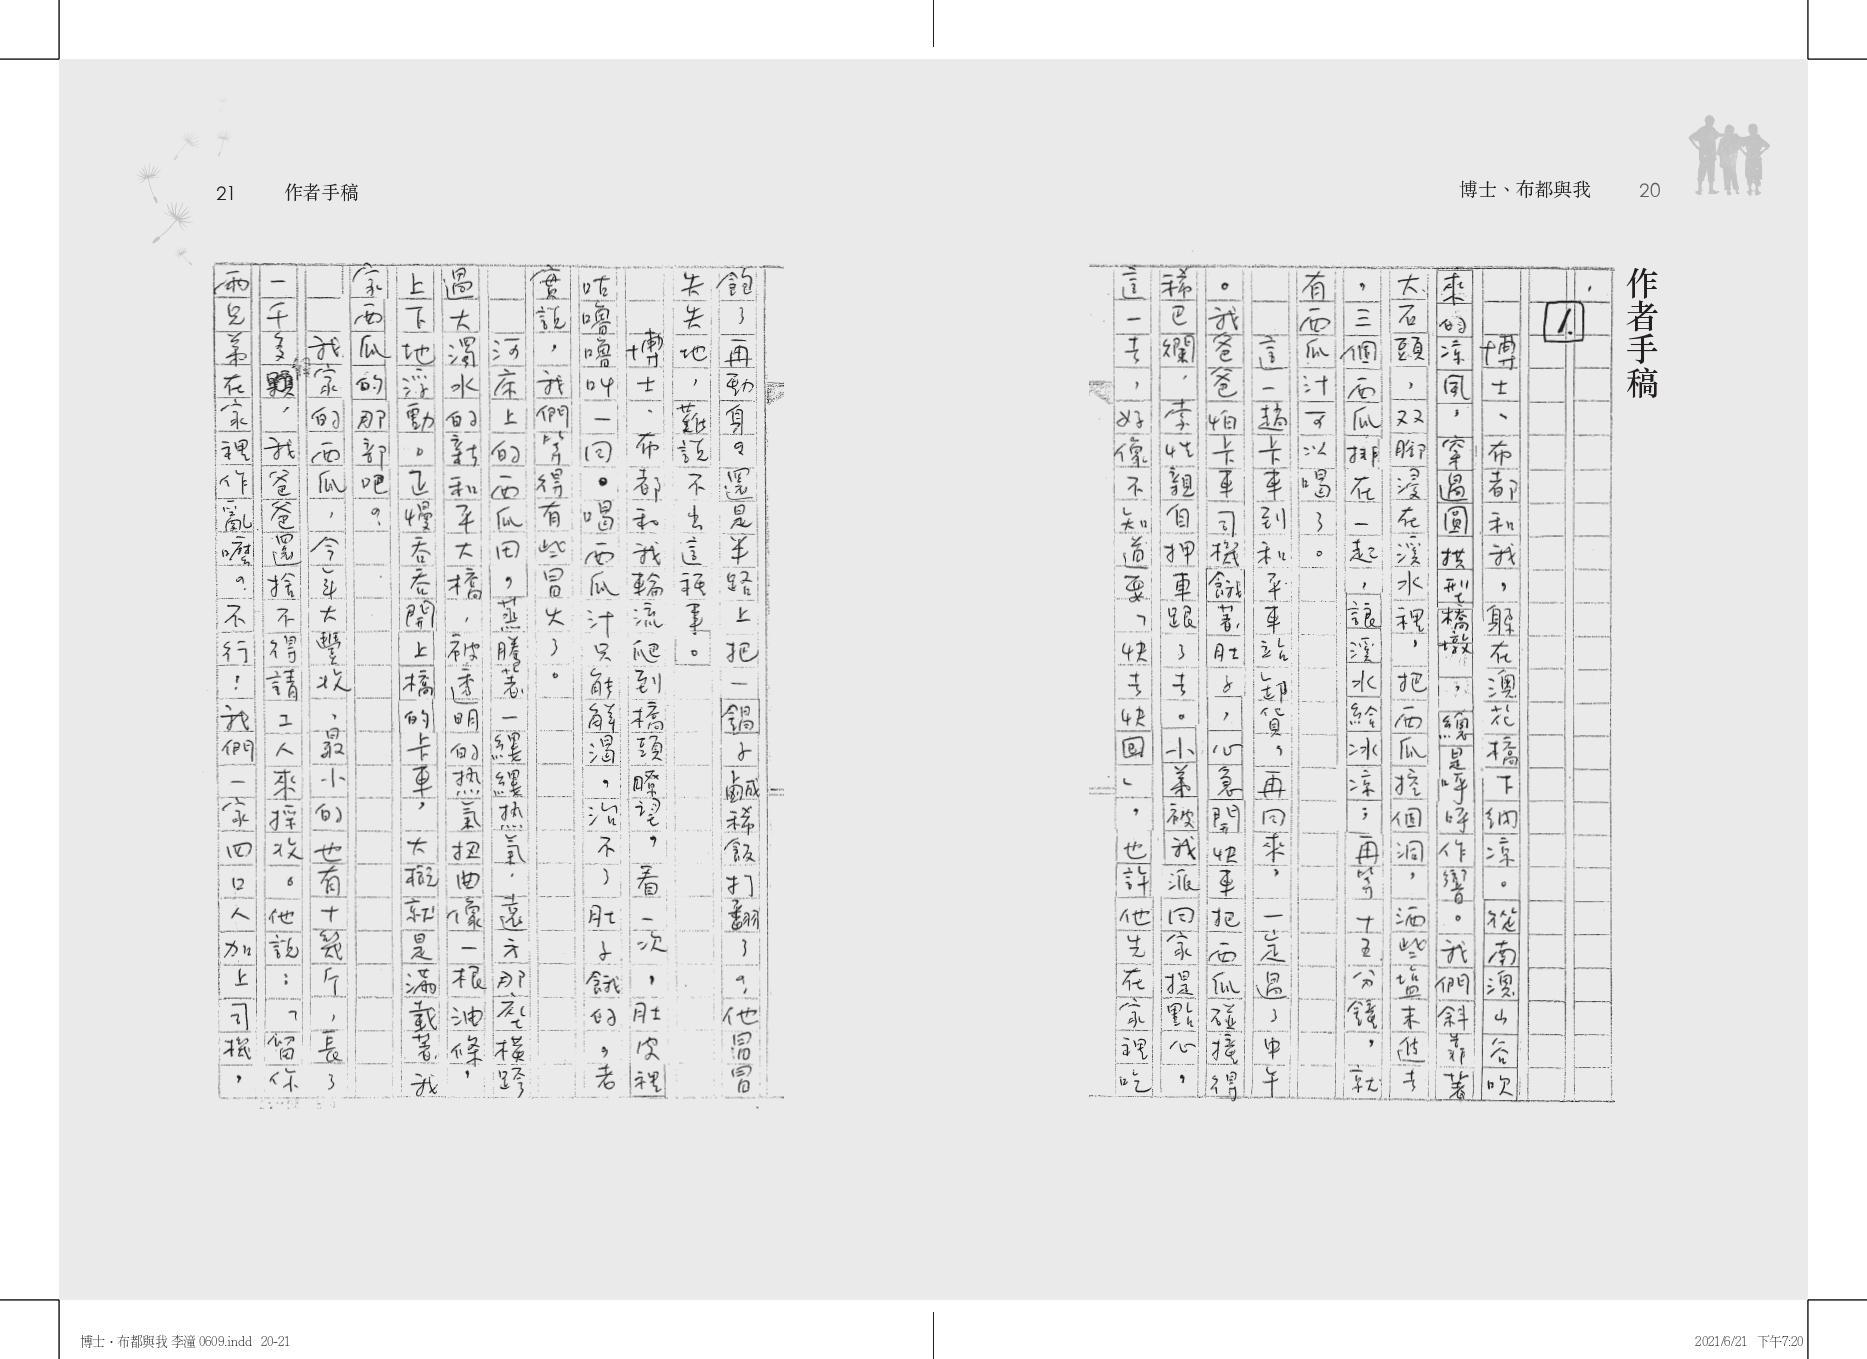 博士、布都與我 20
作者手稿
1.
博士、布都和我，躲在澳花橋下納涼。從南澳山谷吹
來的涼風，穿過圓拱型橋墩，總是呼呼作響。我們斜靠著
大石頭，双腳浸在溪水裡，把西瓜挖個洞，洒些塩末進去
，三個西瓜排在一起，讓溪水給冰涼；再等十五分鐘，就
有西瓜汁可以喝了。
這一趟卡車到和平車站卸貨，再回來，一定過了中午
。我爸爸怕卡車司機餓著肚子，心急開快車把西瓜碰撞得
稀巴爛，李性親自押車跟了去。小弟被我派回家提點心，
這一去，好像不知道要「快去快回」，也許他先在家裡吃
21 作者手稿
飽了再動身？還是半路上把一鍋子鹹稀飯打翻了？他冒冒
失失地，難說不出這種事。
博士、布都和我輪流爬到橋頭瞭望，看一次，肚皮裡
咕嚕嚕叫一回。喝西瓜汁只能解渴，治不了肚子餓的，老
實說，我們等得有些冒火了。
河床上的西瓜田，蒸騰著一縷縷热氣，遠方那座橫跨
過大濁水的新和平大橋，被透明的热氣扭曲像一根油條，
上下地浮動。正慢吞吞開上橋的卡車，大概就是滿載著我
家西瓜的那部吧？
我家的西瓜，今年大豐收，最小的也有十幾斤，長了
一千多顆，我爸爸還捨不得請工人來採收。他說：「留你
兩兄弟在家裡作亂嚒？不行！我們一家四口人加上司機，
博士‧布都與我 李潼 0609.indd 20-21
2021/6/21 下午7:20